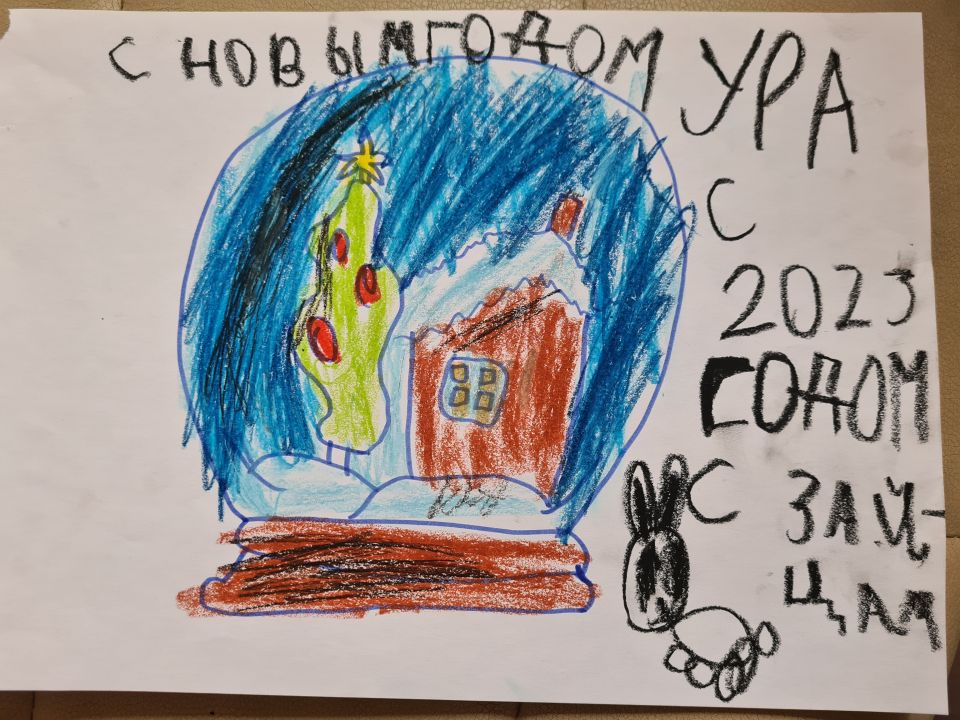 С НОВЫМ ГОДОМ
УРА
С
2023
ГОДОМ
С ЗАЙ-
ЦАМ